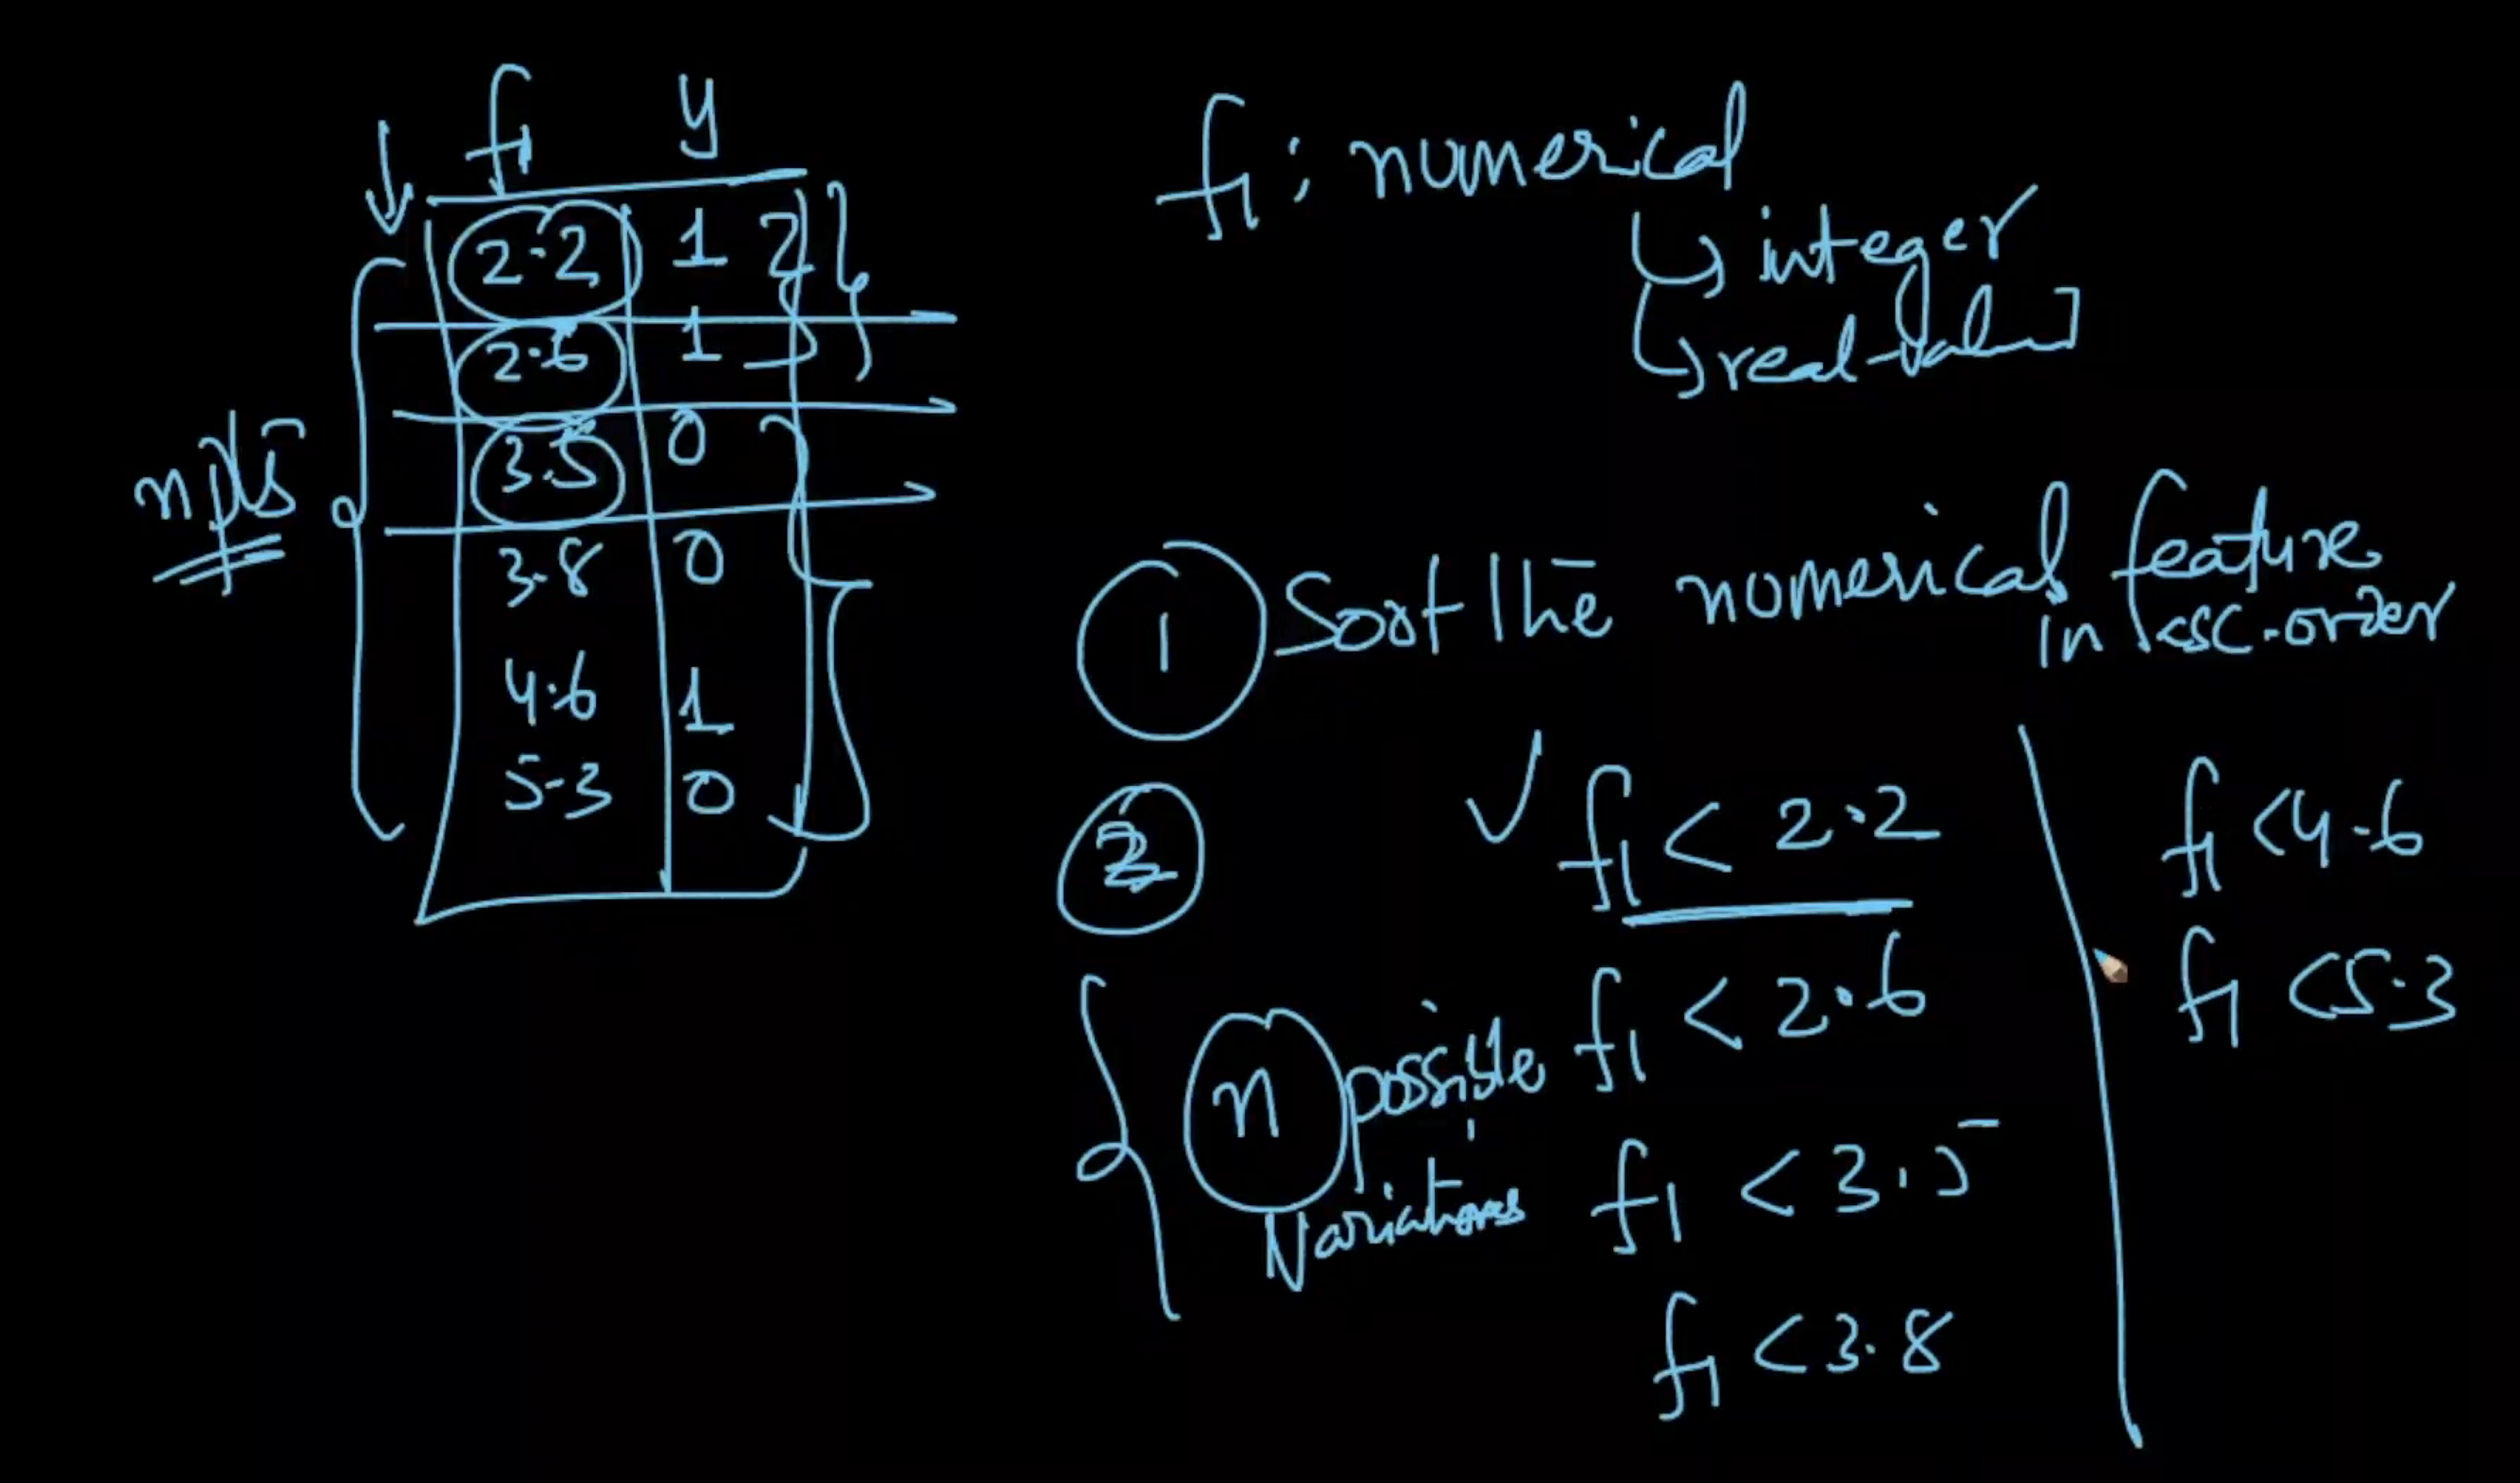 f1 y
2.2 1
2.6 1
3.5 0
3.8 0
4.6 1
5.3 0
n pts
f1 : numerical
integer
real-value
1 Sort the numerical feature
in asc. order
2
f1 < 2.2
f1 < 2.6
f1 < 3.5
f1 < 3.8
n possible
Variations
f1 < 4.6
f1 < 5.3